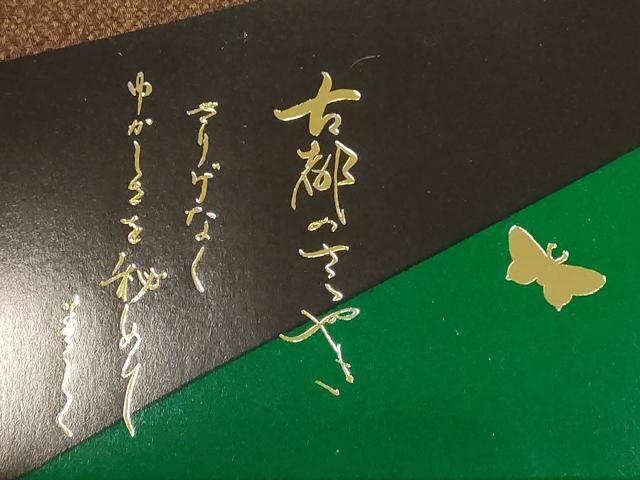 古都のさゝやき
さりげなく
ゆかしさを秘めて